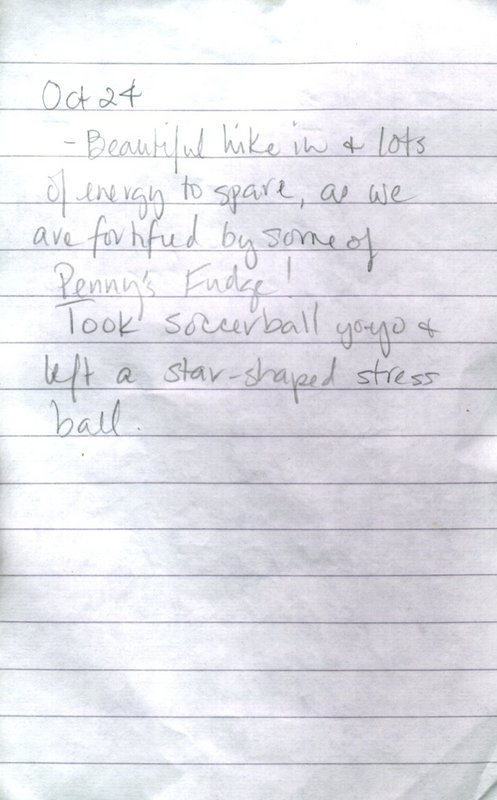 Oct 24
- Beautiful hike in & lots
of energy to spare, as we
are fortified by some of
Penny's Fudge!
Took soccerball yoyo &
left a star-shaped stress
ball.